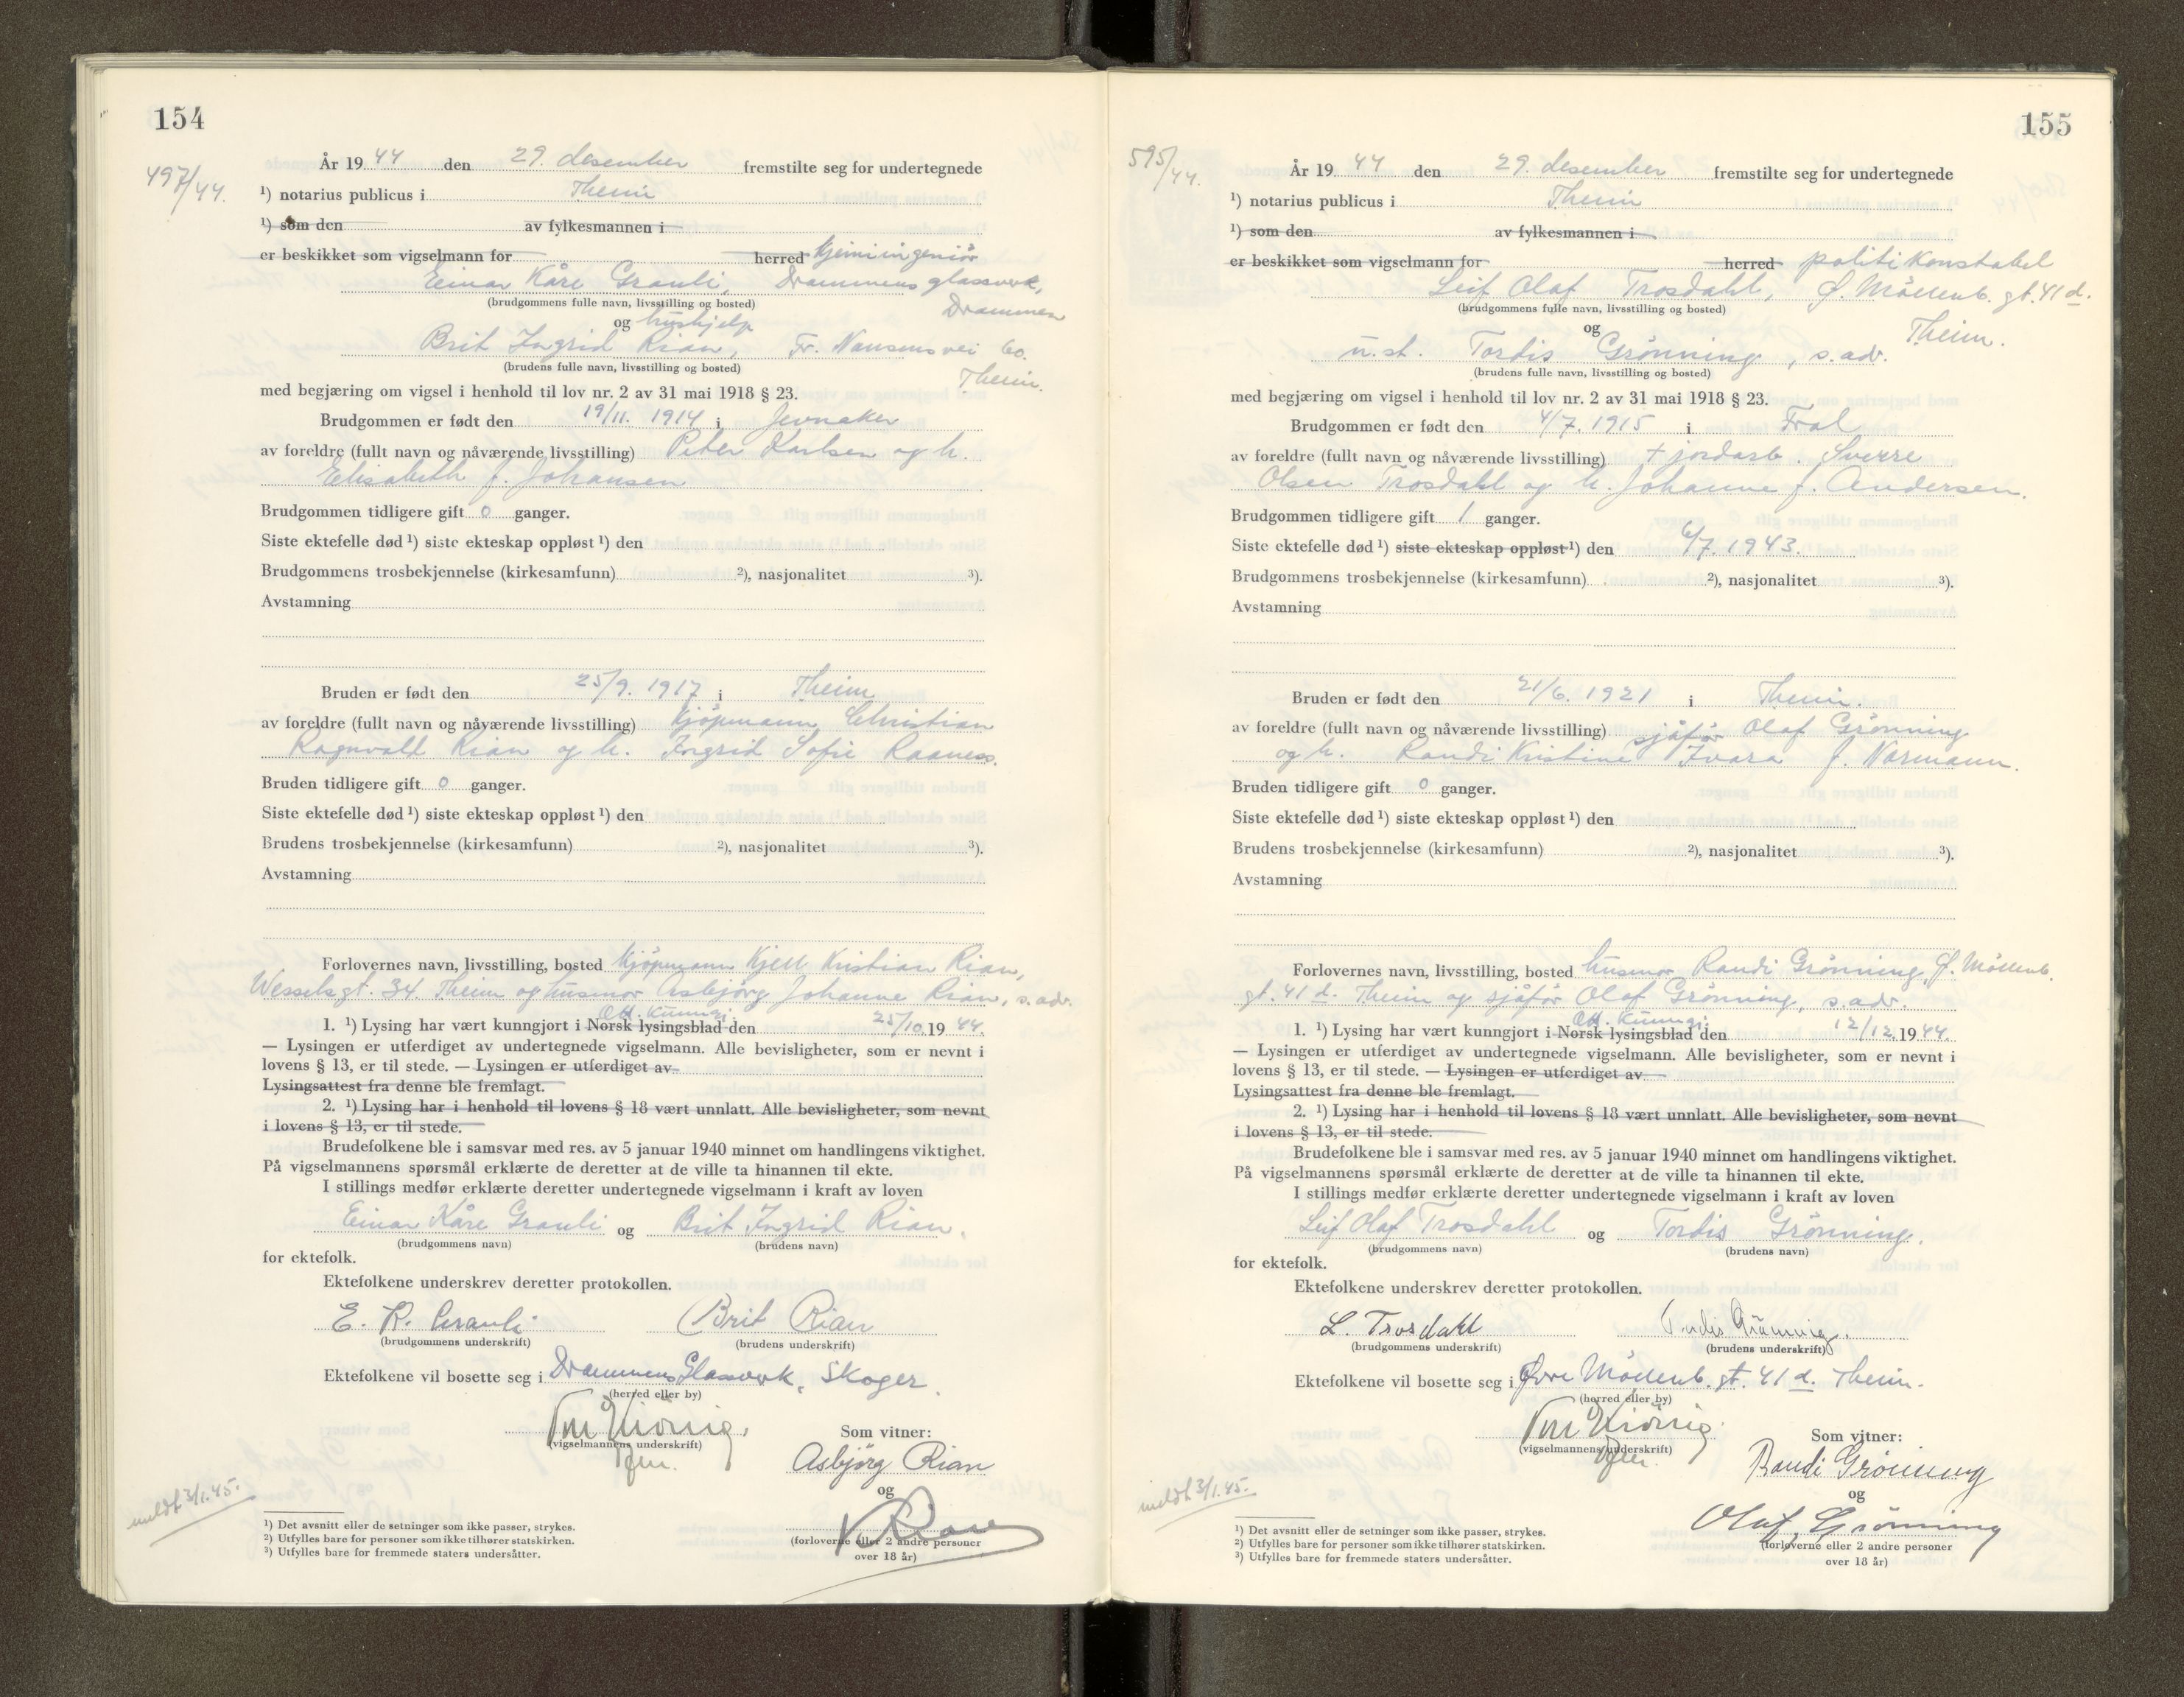 154
497/44.
År 19 44 den 29. desember fremstilte seg for undertegnede
¹) notarius publicus i Theim
¹) som den av fylkesmannen i
er beskikket som vigselmann for herred kjemiingeniør
Einar Kåre Grauli, Drammens glassverk,
(brudgommens fulle navn, livsstilling og bosted) Drammen
og hushjelp
Brit Ingrid Rian, Fr. Nansens vei 60.
(brudens fulle navn, livsstilling og bosted) Theim.
med begjæring om vigsel i henhold til lov nr. 2 av 31 mai 1918 § 23.
Brudgommen er født den 19/11. 1914 i Jevnaker
av foreldre (fullt navn og nåværende livsstilling) Peter Karlsen og h.
Elisabeth f. Johansen
Brudgommen tidligere gift 0 ganger.
Siste ektefelle død ¹) siste ekteskap oppløst ¹) den
Brudgommens trosbekjennelse (kirkesamfunn) ²), nasjonalitet ³).
Avstamning
Bruden er født den 25/9. 1917 i Theim
av foreldre (fullt navn og nåværende livsstilling) kjøpmann Christian
Ragnvald Rian og h. Ingrid Sofie Raaness.
Bruden tidligere gift 0 ganger.
Siste ektefelle død ¹) siste ekteskap oppløst ¹) den
Brudens trosbekjennelse (kirkesamfunn) ²), nasjonalitet ³).
Avstamning
Forlovernes navn, livsstilling, bosted kjøpmann Kjell Kristian Rian,
Wesselsgt. 34 Theim og husmor Asbjørg Johanne Rian, s. adr.
Off. kunngj.
1. ¹) Lysing har vært kunngjort i Norsk lysingsblad den 25/10 19 44.
— Lysingen er utferdiget av undertegnede vigselmann. Alle bevisligheter, som er nevnt i
lovens § 13, er til stede. — Lysingen er utferdiget av
Lysingsattest fra denne ble fremlagt.
2. ¹) Lysing har i henhold til lovens § 18 vært unnlatt. Alle bevisligheter, som nevnt
i lovens § 13, er til stede.
Brudefolkene ble i samsvar med res. av 5 januar 1940 minnet om handlingens viktighet.
På vigselmannens spørsmål erklærte de deretter at de ville ta hinannen til ekte.
I stillings medfør erklærte deretter undertegnede vigselmann i kraft av loven
Einar Kåre Grauli og Brit Ingrid Rian.
(brudgommens navn) (brudens navn)
for ektefolk.
Ektefolkene underskrev deretter protokollen.
E. K. Grauli Brit Rian
(brudgommens underskrift) (brudens underskrift)
Ektefolkene vil bosette seg i Drammens Glassverk, Skoger.
(herred eller by)
(vigselmannens underskrift) Som vitner:
Asbjørg Rian
og
K Rian
meldt 3/1.45.
¹) Det avsnitt eller de setninger som ikke passer, strykes.
²) Utfylles bare for personer som ikke tilhører statskirken.
³) Utfylles bare for fremmede staters undersåtter.
(forloverne eller 2 andre personer
over 18 år)
155
595/44.
År 19 44 den 29. desember fremstilte seg for undertegnede
¹) notarius publicus i Theim
¹) som den av fylkesmannen i
er beskikket som vigselmann for herred politikonstabel
Leif Olaf Trosdahl, Ø. Möllenb. gt. 41 d.
(brudgommens fulle navn, livsstilling og bosted)
og Theim.
u.st. Tordis Grönning, s. adr.
(brudens fulle navn, livsstilling og bosted)
med begjæring om vigsel i henhold til lov nr. 2 av 31 mai 1918 § 23.
Brudgommen er født den 4/7. 1915 i Frol
av foreldre (fullt navn og nåværende livsstilling) + jordarb. Sverre
Olsen Trosdahl og h. Johanne f. Andersen.
Brudgommen tidligere gift 1 ganger.
Siste ektefelle død ¹) siste ekteskap oppløst ¹) den 6/7. 1943.
Brudgommens trosbekjennelse (kirkesamfunn) ²), nasjonalitet ³).
Avstamning
Bruden er født den 21/6. 1921 i Theim.
av foreldre (fullt navn og nåværende livsstilling) sjåför Olaf Grönning
og h. Randi Kristine Ivara f. Normann.
Bruden tidligere gift 0 ganger.
Siste ektefelle død ¹) siste ekteskap oppløst ¹) den
Brudens trosbekjennelse (kirkesamfunn) ²), nasjonalitet ³).
Avstamning
Forlovernes navn, livsstilling, bosted husmor Randi Grönning, Ø. Möllenb.
gt. 41 d. Theim og sjåför Olaf Grönning, s. adr.
Off. kunngj.
1. ¹) Lysing har vært kunngjort i Norsk lysingsblad den 12/12. 19 44.
— Lysingen er utferdiget av undertegnede vigselmann. Alle bevisligheter, som er nevnt i
lovens § 13, er til stede. — Lysingen er utferdiget av
Lysingsattest fra denne ble fremlagt.
2. ¹) Lysing har i henhold til lovens § 18 vært unnlatt. Alle bevisligheter, som nevnt
i lovens § 13, er til stede.
Brudefolkene ble i samsvar med res. av 5 januar 1940 minnet om handlingens viktighet.
På vigselmannens spørsmål erklærte de deretter at de ville ta hinannen til ekte.
I stillings medfør erklærte deretter undertegnede vigselmann i kraft av loven
Leif Olaf Trosdahl og Tordis Grönning.
(brudgommens navn) (brudens navn)
for ektefolk.
Ektefolkene underskrev deretter protokollen.
L. Trosdahl Tordis Grönning.
(brudgommens underskrift) (brudens underskrift)
Ektefolkene vil bosette seg i Øvre Möllenb. gt. 41 d. Theim.
(herred eller by)
(vigselmannens underskrift) Som vitner:
Randi Grönning
og
Olaf Grönning
meldt 3/1.45.
¹) Det avsnitt eller de setninger som ikke passer, strykes.
²) Utfylles bare for personer som ikke tilhører statskirken.
³) Utfylles bare for fremmede staters undersåtter.
(forloverne eller 2 andre personer
over 18 år)